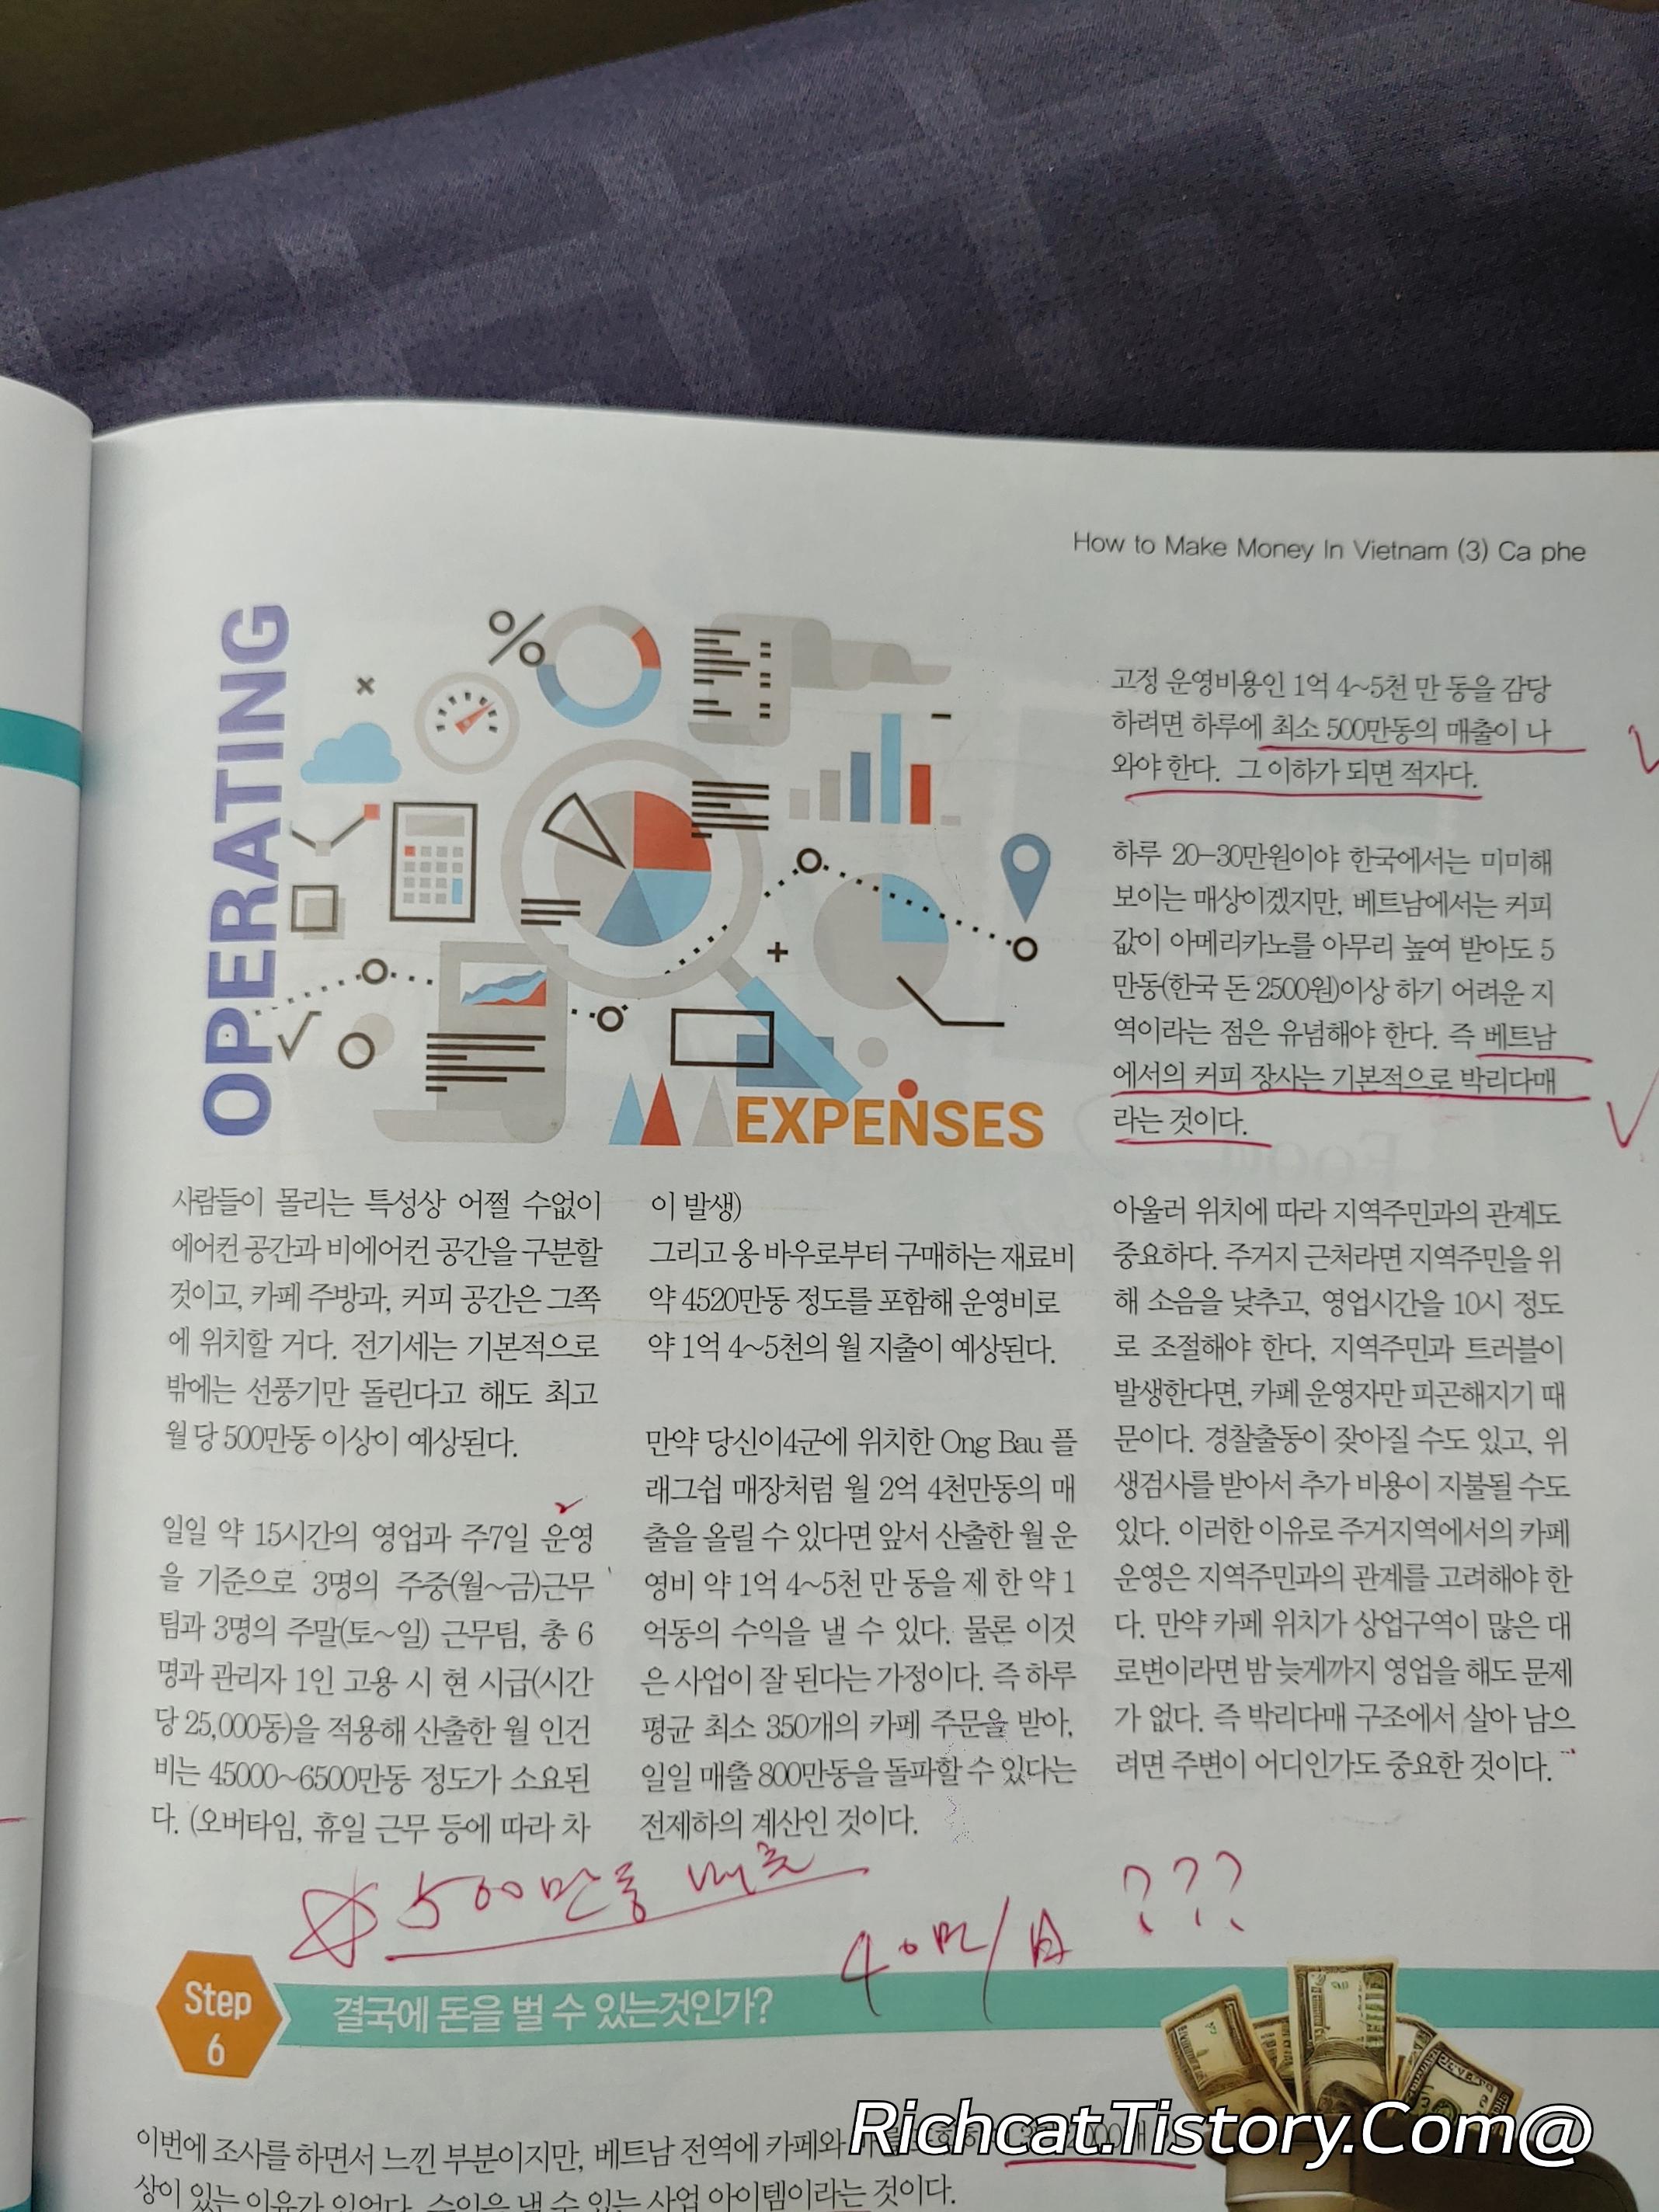 How to Make Money In Vietnam (3) Ca phe
OPERATING
EXPENSES
사람들이 몰리는 특성상 어쩔 수없이
에어컨 공간과 비에어컨 공간을 구분할
것이고, 카페 주방과, 커피 공간은 그쪽
에 위치할 거다. 전기세는 기본적으로
밖에는 선풍기만 돌린다고 해도 최고
월 당 500만동 이상이 예상된다.
일일 약 15시간의 영업과 주7일 운영
을 기준으로 3명의 주중(월~금)근무
팀과 3명의 주말(토~일) 근무팀, 총 6
명과 관리자 1인 고용 시 현 시급(시간
당 25,000동)을 적용해 산출한 월 인건
비는 45000~6500만동 정도가 소요된
다. (오버타임, 휴일 근무 등에 따라 차
이 발생)
그리고 옹 바우로부터 구매하는 재료비
약 4520만동 정도를 포함해 운영비로
약 1억 4~5천의 월 지출이 예상된다.
만약 당신이4군에 위치한 Ong Bau 플
래그쉽 매장처럼 월 2억 4천만동의 매
출을 올릴 수 있다면 앞서 산출한 월 운
영비 약 1억 4~5천 만 동을 제 한 약 1
억동의 수익을 낼 수 있다. 물론 이것
은 사업이 잘 된다는 가정이다. 즉 하루
평균 최소 350개의 카페 주문을 받아,
일일 매출 800만동을 돌파할 수 있다는
전제하의 계산인 것이다.
고정 운영비용인 1억 4~5천 만 동을 감당
하려면 하루에 최소 500만동의 매출이 나
와야 한다. 그 이하가 되면 적자다.
하루 20-30만원이야 한국에서는 미미해
보이는 매상이겠지만, 베트남에서는 커피
값이 아메리카노를 아무리 높여 받아도 5
만동(한국 돈 2500원)이상 하기 어려운 지
역이라는 점은 유념해야 한다. 즉 베트남
에서의 커피 장사는 기본적으로 박리다매
라는 것이다.
아울러 위치에 따라 지역주민과의 관계도
중요하다. 주거지 근처라면 지역주민을 위
해 소음을 낮추고, 영업시간을 10시 정도
로 조절해야 한다. 지역주민과 트러블이
발생한다면, 카페 운영자만 피곤해지기 때
문이다. 경찰출동이 잦아질 수도 있고, 위
생검사를 받아서 추가 비용이 지불될 수도
있다. 이러한 이유로 주거지역에서의 카페
운영은 지역주민과의 관계를 고려해야 한
다. 만약 카페 위치가 상업구역이 많은 대
로변이라면 밤 늦게까지 영업을 해도 문제
가 없다. 즉 박리다매 구조에서 살아 남으
려면 주변이 어디인가도 중요한 것이다.
500만동 매출
40만/日 ???
Step
6
결국에 돈을 벌 수 있는것인가?
이번에 조사를 하면서 느낀 부분이지만, 베트남 전역에 카페와
상이 있는 이유가 있었다. 수익을 낼 수 있는 사업 아이템이라는 것이다.
Richcat.Tistory.Com@